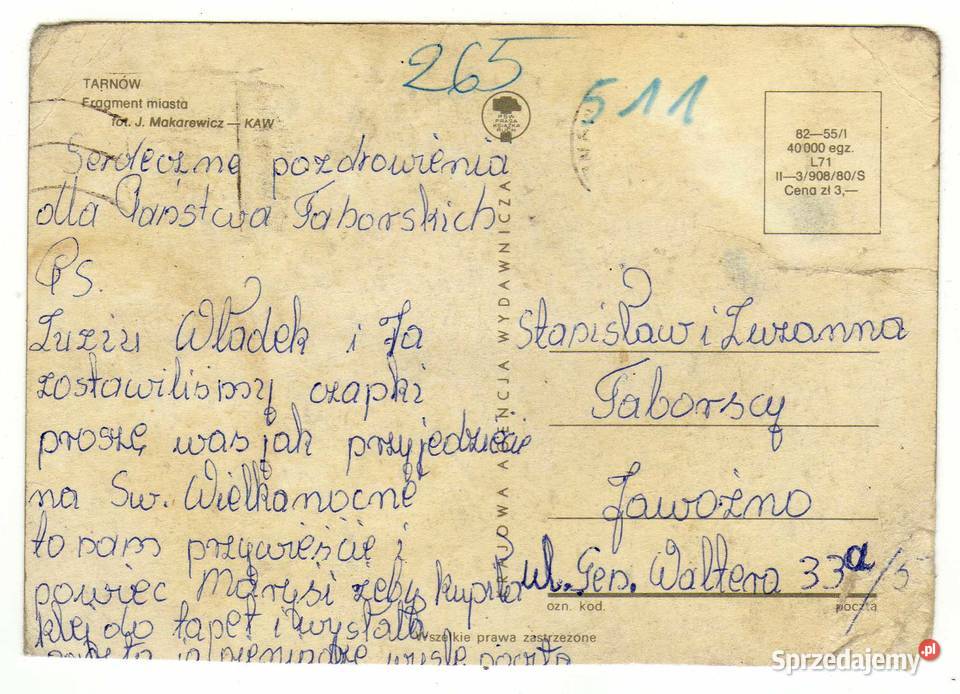 265
511
TARNÓW
Fragment miasta
fot. J. Makarewicz — KAW
PSW
PRASA
KSIĄŻKA
RUCH
82—55/I
40 000 egz.
L71
II—3/908/80/S
Cena zł 3,—
Serdeczne pozdrowienia
dla Państwa Taborskich
PS.
Zuziu Władek i Ja
zostawiliśmy czapki
proszę was jak przyjedziecie
na Św. Wielkanocne
to nam przywieście i
powiec Marysi żeby kupiła
klej do tapet i wysłała
KRAJOWA AGENCJA WYDAWNICZA
Stanisław i Zuzanna
Taborscy
Jawożno
ul. Gen. Waltera 33a/5
ozn. kod.
poczta
Wszelkie prawa zastrzeżone
Sprzedajemy.pl